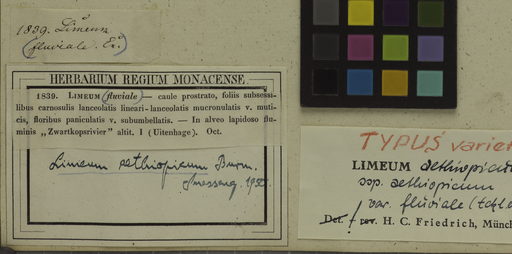 1839. Limeum
(fluviale. E.)
HERBARIUM REGIUM MONACENSE.
1839. LIMEUM (fluviale) — caule prostrato, foliis subsessi-
libus carnosulis lanceolatis lineari-lanceolatis mucronulatis v. muti-
cis, floribus paniculatis v. subumbellatis. — In alveo lapidoso flu-
minis „Zwartkopsrivier" altit. I (Uitenhage). Oct.
Limeum aethiopicum Burm.
TYPUS variet
LIMEUM aethiopicum
ssp. aethiopicum
var. fluviale (
Det. ! rev. H. C. Friedrich, Münch